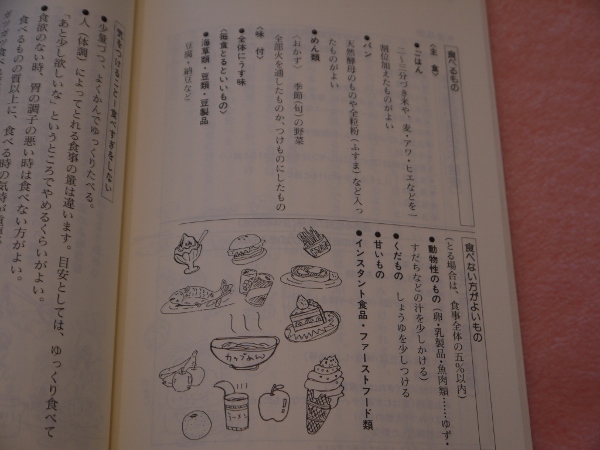 食べるもの
〈主 食〉
●ごはん
二～三分づき米や、麦・アワ・ヒエなどを一
割位加えたものがよい
●パン
天然酵母のものや全粒粉(ふすま)など入っ
たものがよい
●めん類
〈おかず〉 季節(旬)の野菜
全部火を通したものか、つけものにしたもの
〈味 付〉
●全体にうす味
〈毎食とるといいもの〉
●海草類・豆類・豆製品
豆腐・納豆など
食べない方がよいもの
(とる場合は、食事全体の五%以内)
●動物性のもの(卵・乳製品・魚肉類……ゆず・
すだちなどの汁を少しかける)
●くだもの しょうゆを少しつける
●甘いもの
●インスタント食品・ファーストフード類
カップめん
ラーメン
気をつけること―食べすぎをしない
●少量づつ、よくかんでゆっくりたべる。
●人(体調)によってとれる食事の量は違います。目安としては、ゆっくり食べて
"あと少し欲しいな"というところでやめるくらいがよい。
●食欲のない時、胃の調子の悪い時は食べない方がよい。
食べるものの質以上に、食べる時の気持が